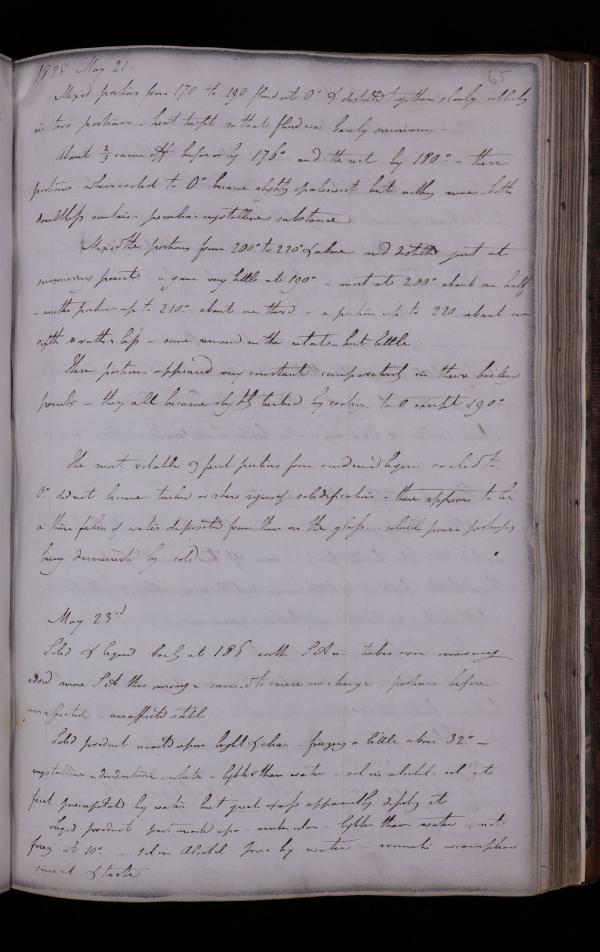 65
1825 May 21.
Mixed portions from 170 to 190 fluid at 0° & distilled together slowly collecting
in two portions - heat kept so that fluid was barely simmering.
About 2/3 came off before or by 176° and the rest by 180° - these
portions when cooled to 0° became slightly opalescent but nothing more - both
doubtless contain peculiar crystalline substance
Mixed the portions from 200° to 220° & above and distilled just at
simmering point - gave very little at 190° - most at 200° about one half
- another portion up to 210° about one third - a portion up to 220 about one
sixth or rather less - some remained in the retort - but little.
These portions appeared very constant comparatively in their boiling
points - they all became slightly turbid by cooling to 0 except 190°
The most volatile & first portions from condensed liquor cooled to
0° did not become turbid or shew signs of solidification - there appears to be
a thin film of water deposited from them on the glass - solvent power perhaps
being diminished by cold
May 23rd
Solid & liquid boily at 186 with S A in tubes over mercury
added more S A this morng - seemed to cause no change portions before
unaffected - unaffected still
Solid product acted upon by light & chlor - freezing a little above 32° -
crystalline - - white - lighter than water - sol in alcohol - sol
precipitated by water but great excess apparently
Liquid product part - - lighter than water - not
freez at 10° - sol in Alcohol by water - aromatic
smell & taste